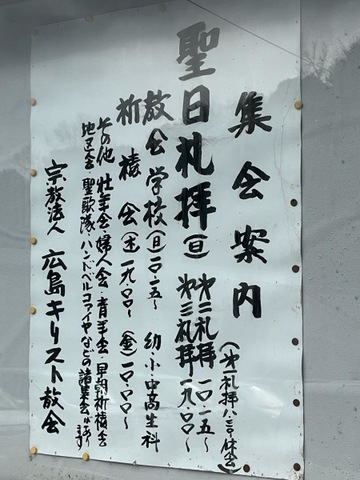 集会案内
(㐧一礼拝八・三〇休会)
聖日礼拝(日)
㐧二礼拝 一〇・一五〜
㐧三礼拝 一九・〇〇〜
教会学校(日)一〇・一五〜 幼・小・中高生科
祈祷会(土)一九・〇〇〜 (金)一〇・〇〇〜
その他 壮年会・婦人会・青年会・早朝祈祷会
地区会・聖歌隊・ハンドベルクワイヤなどの諸集会があります
宗教法人 広島キリスト教会